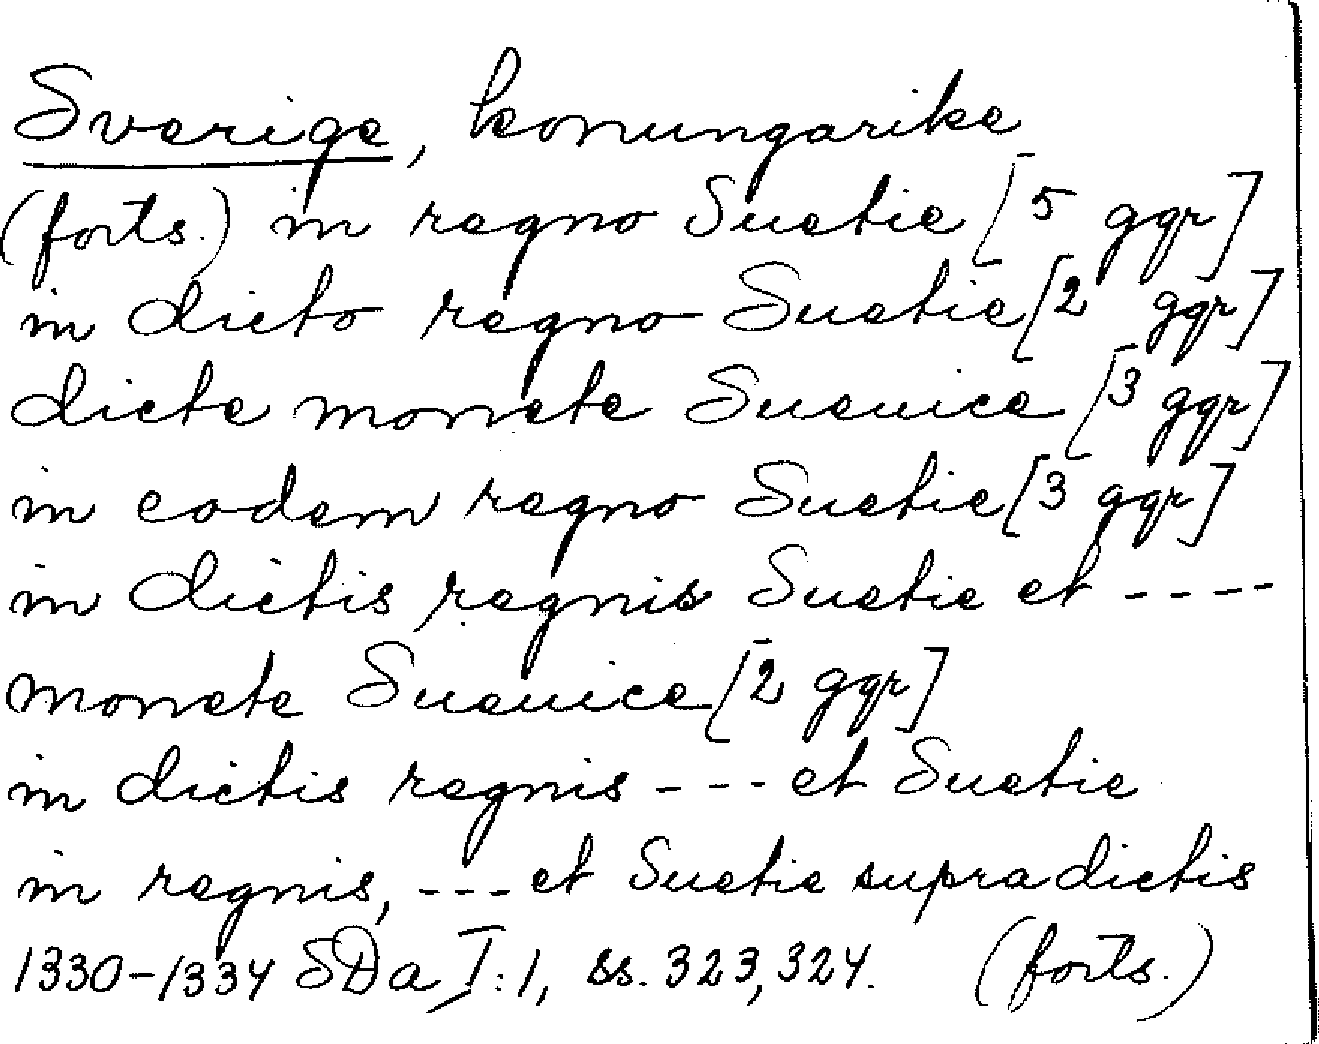 Sverige, konungarike
(forts.) in regno Suetie [5 ggr]
in dicto regno Suetie [2 ggr]
dicte monete Sueuice [3 ggr]
in eodem regno Suetie [3 ggr]
in dictis regnis Suetie et ----
monete Sueuice [2 ggr]
in dictis regnis --- et Suetie
in regnis, --- et Suetie supradictis
1330-1334 SDa I:1, ss. 323, 324. (forts.)